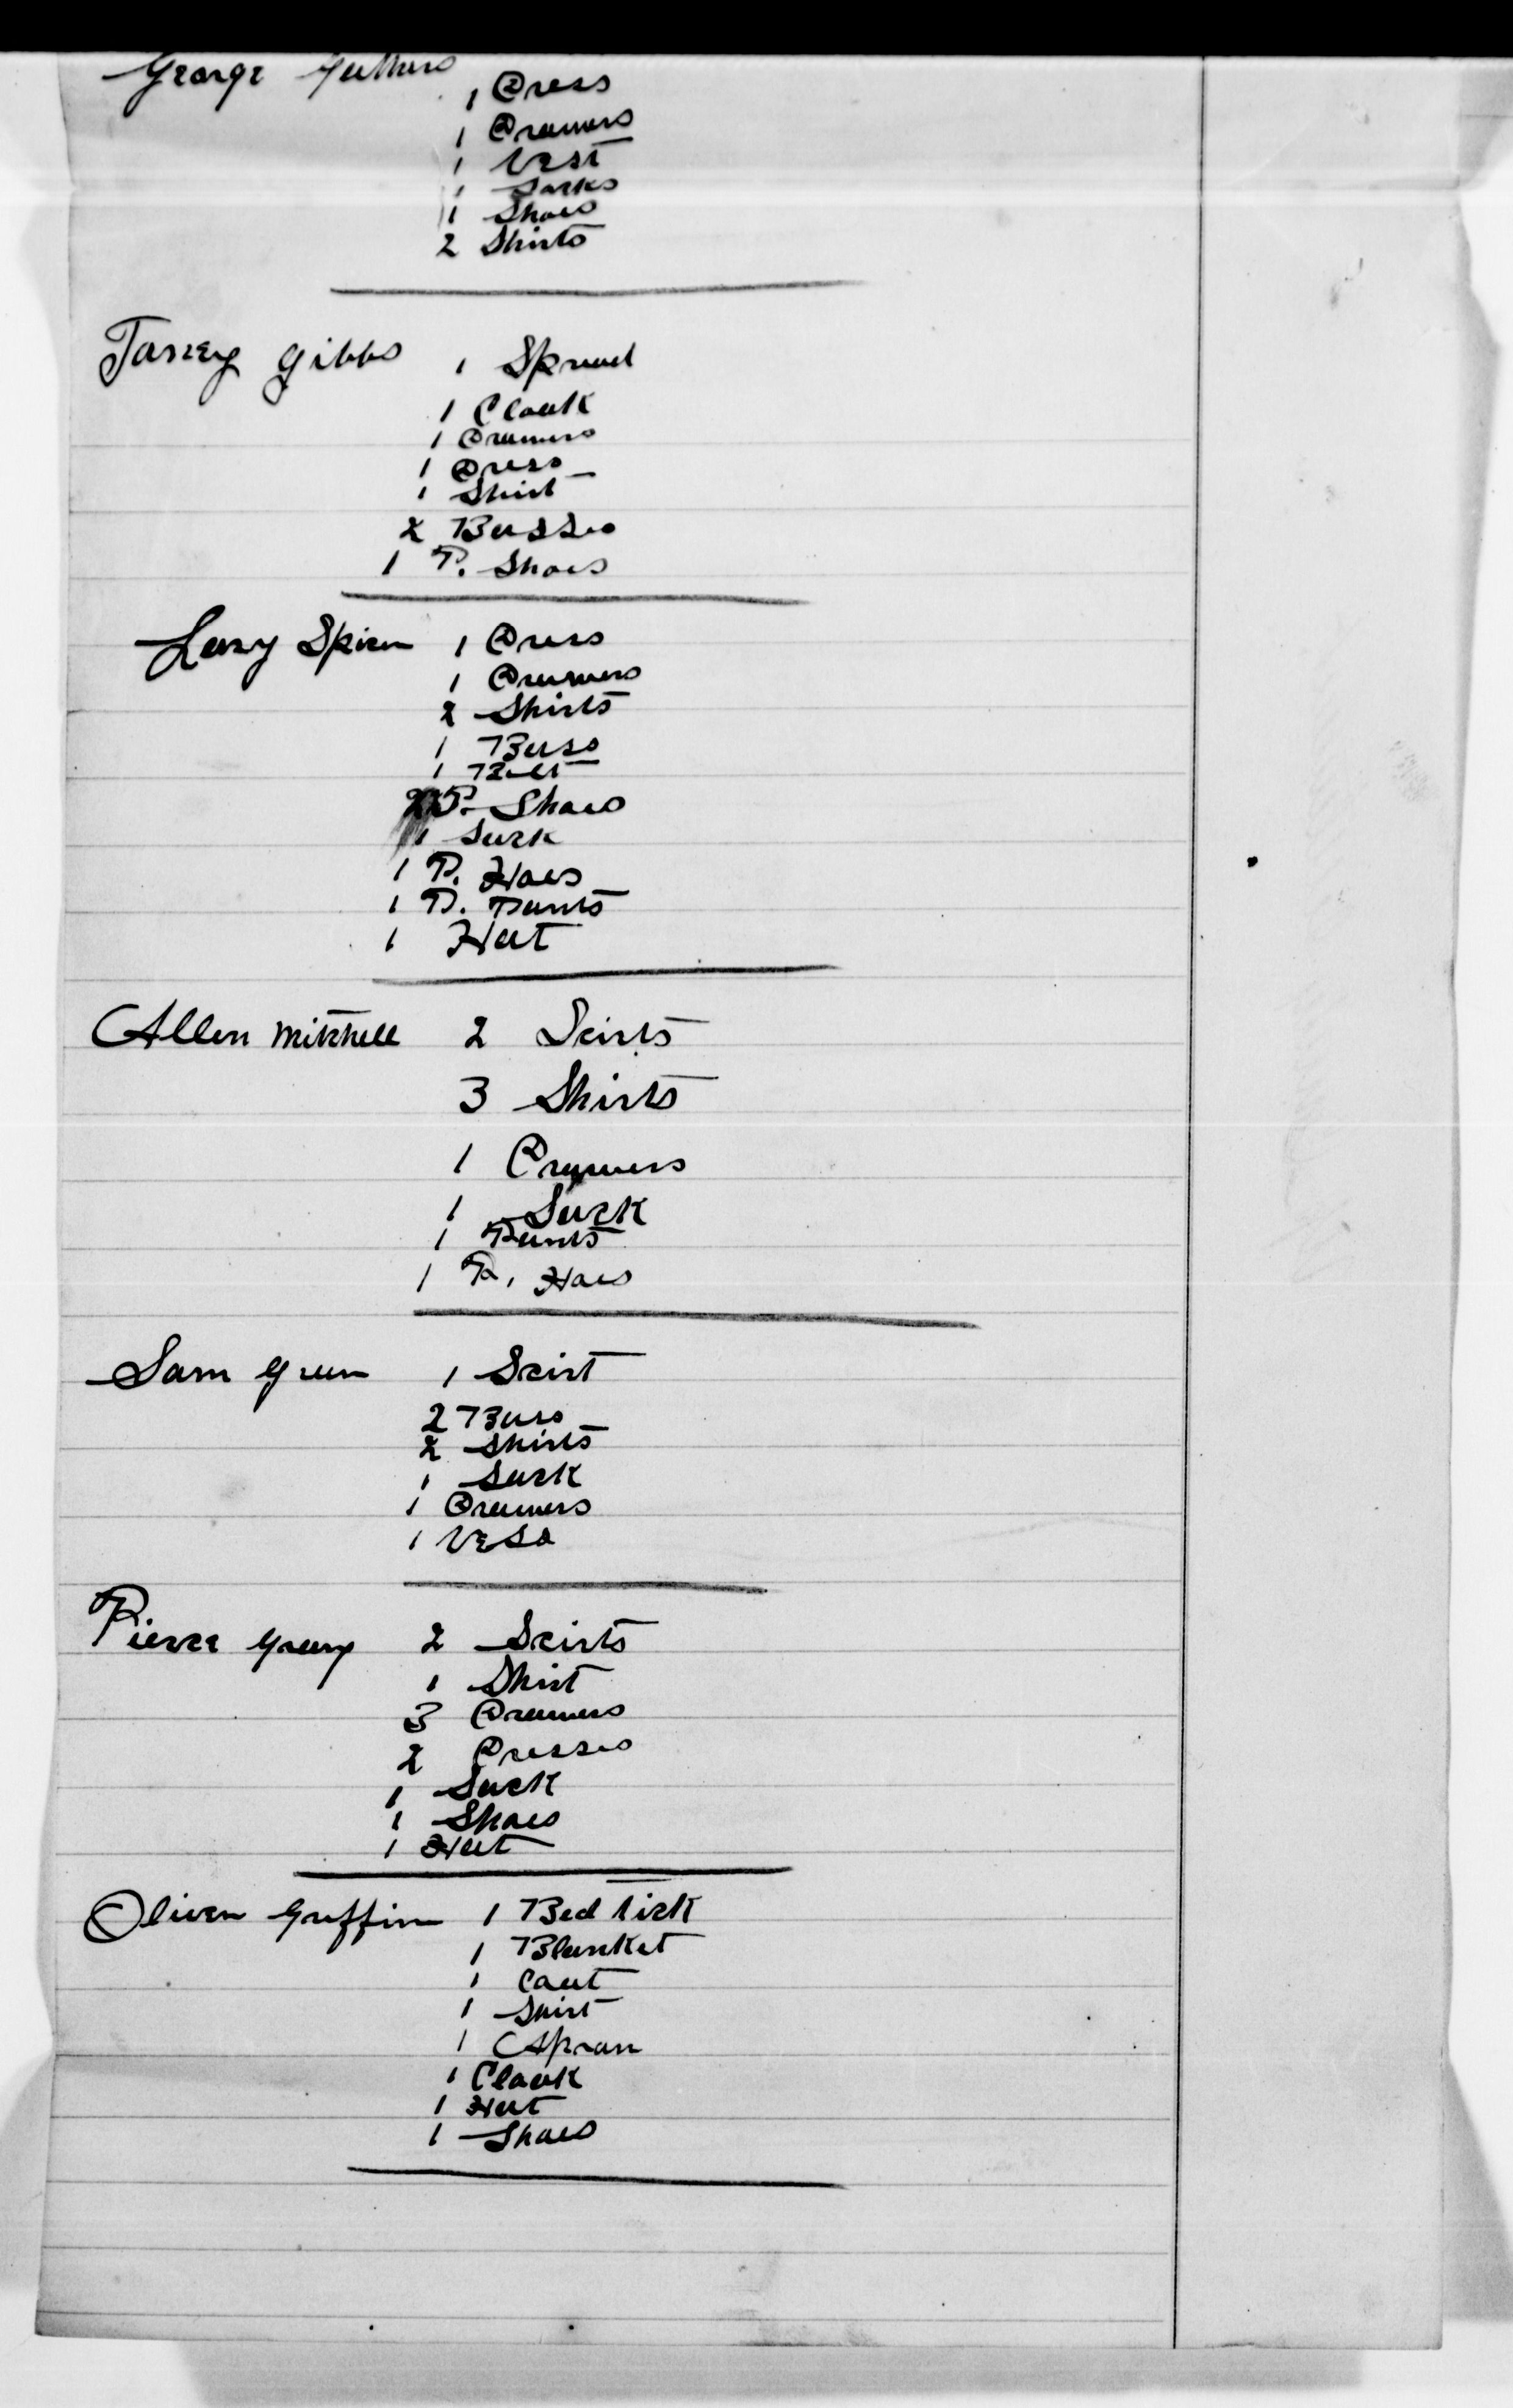 George
1 Dress
1 Drawers
1 Vest
1 Sacks
1 Shoes
2 Shirts
Gibbs 1 Spread
1 Cloak
1 Drawers
1 Dress
1 Shirt
2
1 P. Shoes
1 Dress
1 Drawers
2 Shirts
1
1 Belt
P. Shoes
1 Sack
1 P. Hoes
1 P. Pants
1 Hat
Allen Mitchell 2 Scirts
3 Shirts
1 Drawers
1 Sack
1 Pants
1 P. Hoes
Sam Green 1 Scirt
2
2 Shirts
1 Sack
1 Drawers
1
Pierce 2 Scirts
1 Shirt
3 Drawers
2 Dresses
1 Sack
1 Shoes
1 Hat
Oliver Griffin 1 Bed tick
1 Blanket
1 Coat
1 Shirt
1 Apron
1 Cloak
1 Hat
1 Shoes